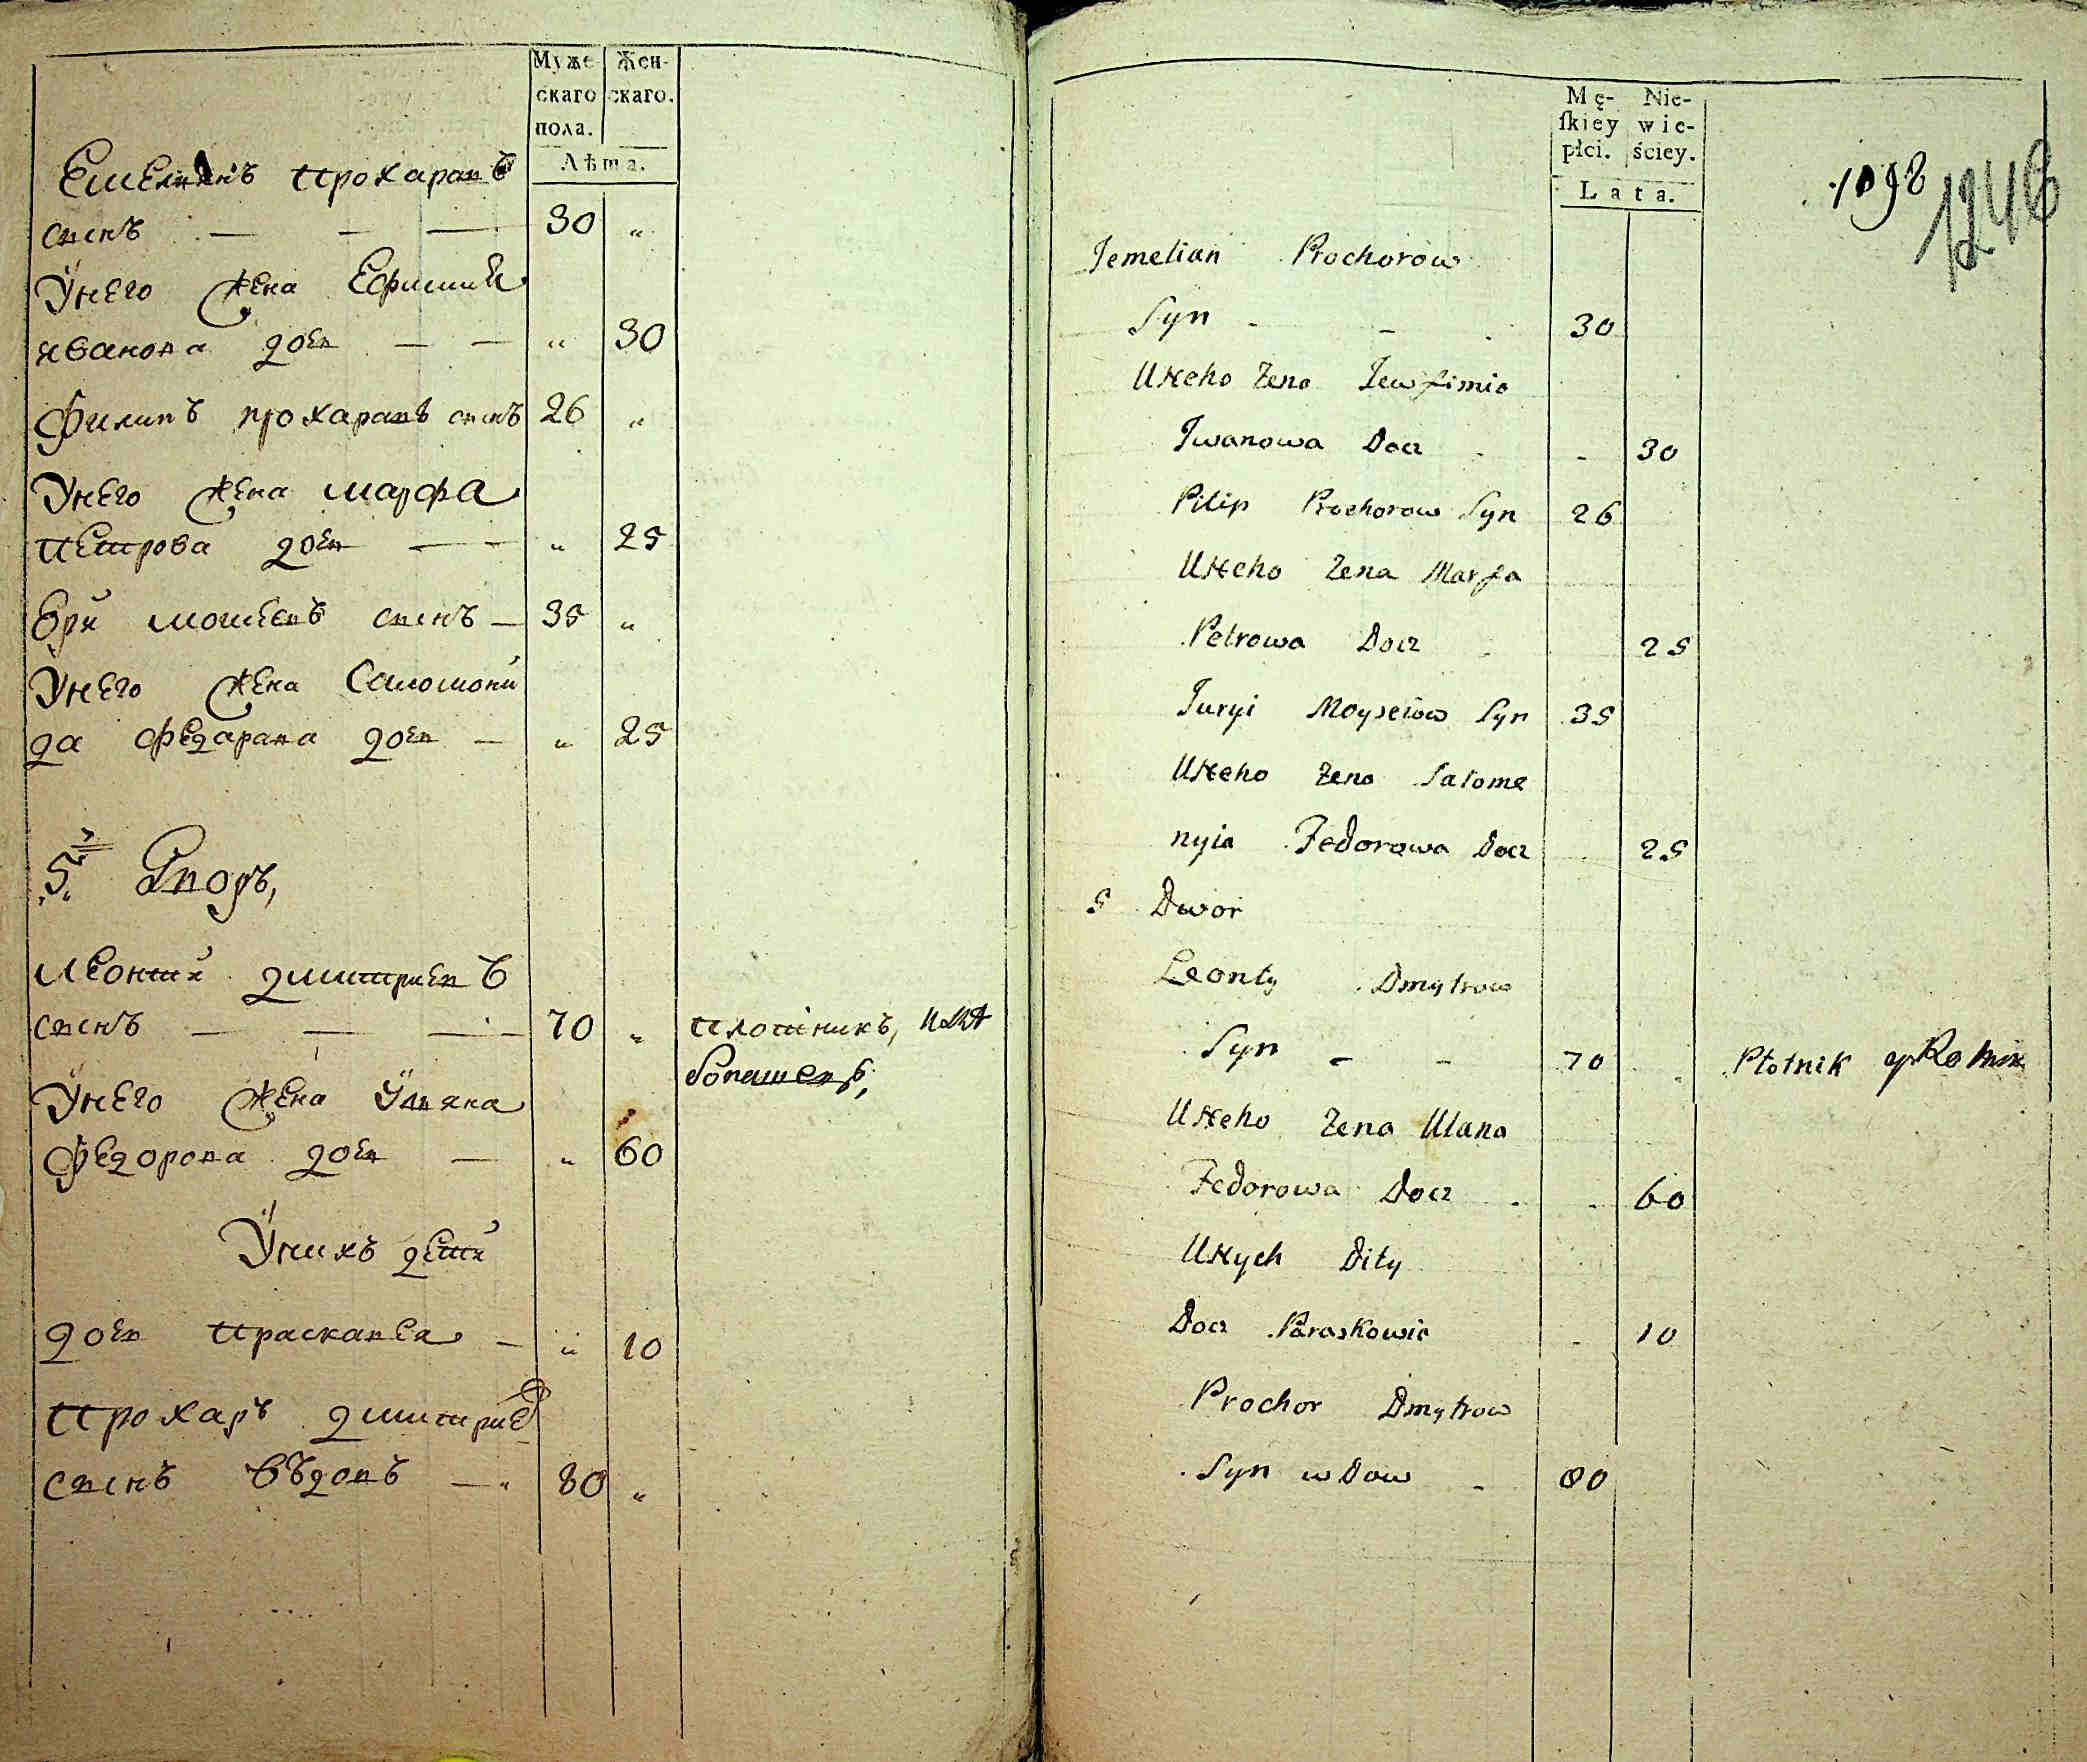 Муже- Жен-
скаго скаго.
пола.
Лѣта.
Емельянъ Прохаравъ
сынъ — — — 30 „
У него жена Ефимия
ивановна дочь — — „ 30
Филипъ прохаравъ сынъ 26 „
У него жена марфа
Петрова дочь — — „ 25
Юри моисеевъ сынъ — 35 „
У него жена Саломони
да федарава дочь — „ 25
5й Дворъ,
Леонтий дмитриевъ
сынъ — — — 70 „ Плотникъ,
У него жена Ульяна
федорова дочь — „ 60
У нихъ дети
дочь Прасковея — „ 10
Прохаръ дмитриев
сынъ въдовъ — „ 80 „
Mę- Nie-
ſkiey wie-
płci. ściey.
Lata.
1098
1246
Jemelian Prochorow
Syn - - . 30
UNeho Zena Jewfimia
Jwanowa Docz - - 30
Pilip Prochorow Syn 26
UNeho Zena Marfa
Petrowa Docz - 25
Juryi Moyseiow Syn 35
UNeho Zena Salome
nyia Fedorowa Docz 25
5 Dwor
Leonty Dmytrow
Syn - - 70 Płotnik y Rolnik
UNeho Zena Ulana
Fedorowa Docz - - 60
UNych Dity
Docz Paraskowia - 10
Prochor Dmytrow
Syn wDow - 80